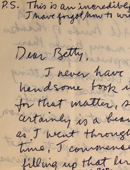 P.S. This is an incredibly
I have forgot how to wri
Dear Betty,
I never have
handsome book i
for that matter, s
certainly is a bea
as I went through
time, I commence
filling up that br